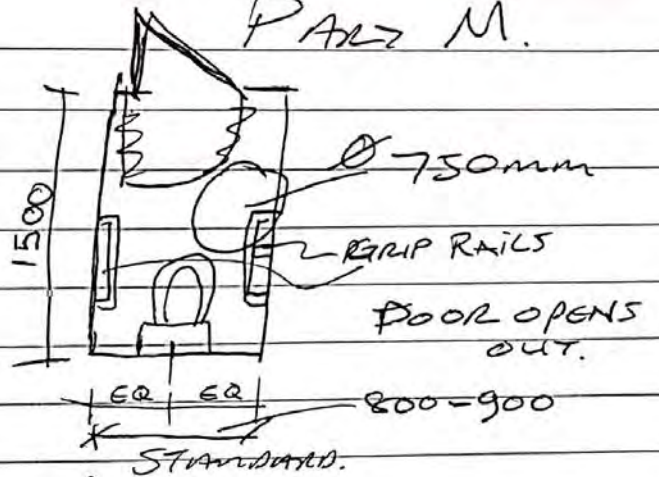 PART M.
1500
Ø 750mm
GRIP RAILS
DOOR OPENS
OUT.
EQ EQ
800-900
STANDARD.